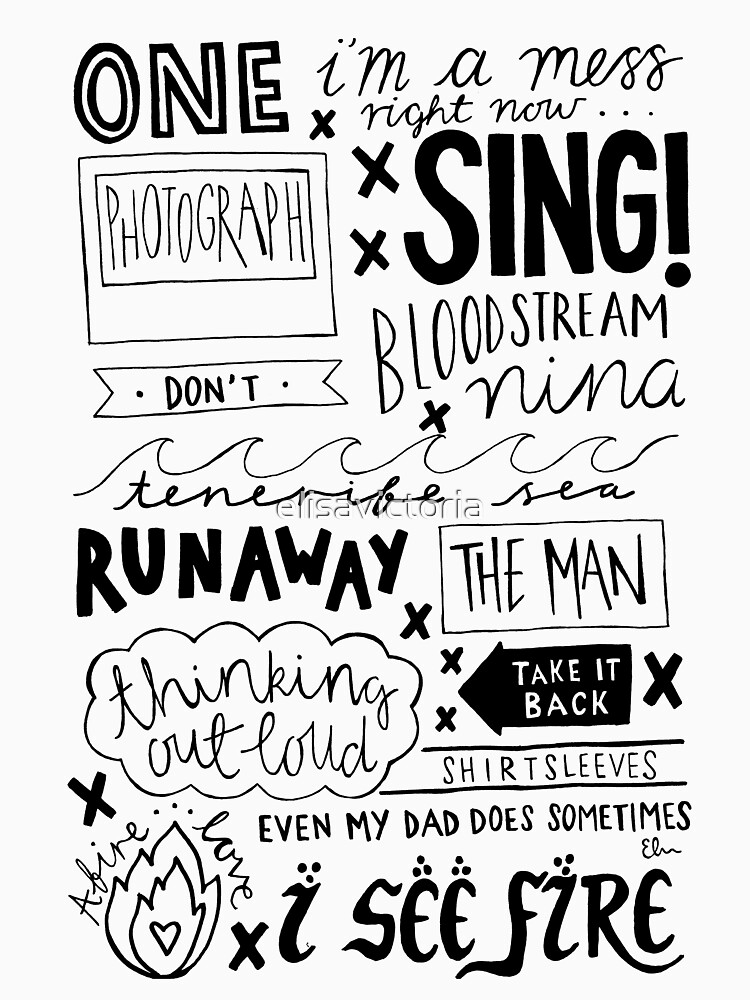 ONE
i'm a mess
right now...
x
PHOTOGRAPH
x
x
SING!
BLOODSTREAM
· DON'T ·
nina
x
tenerife sea
elisavictoria
RUNAWAY
THE MAN
x
thinking
out loud
x
x
TAKE IT
BACK
x
SHIRTSLEEVES
x
Afire...love
EVEN MY DAD DOES SOMETIMES
x
i SËË FiRE